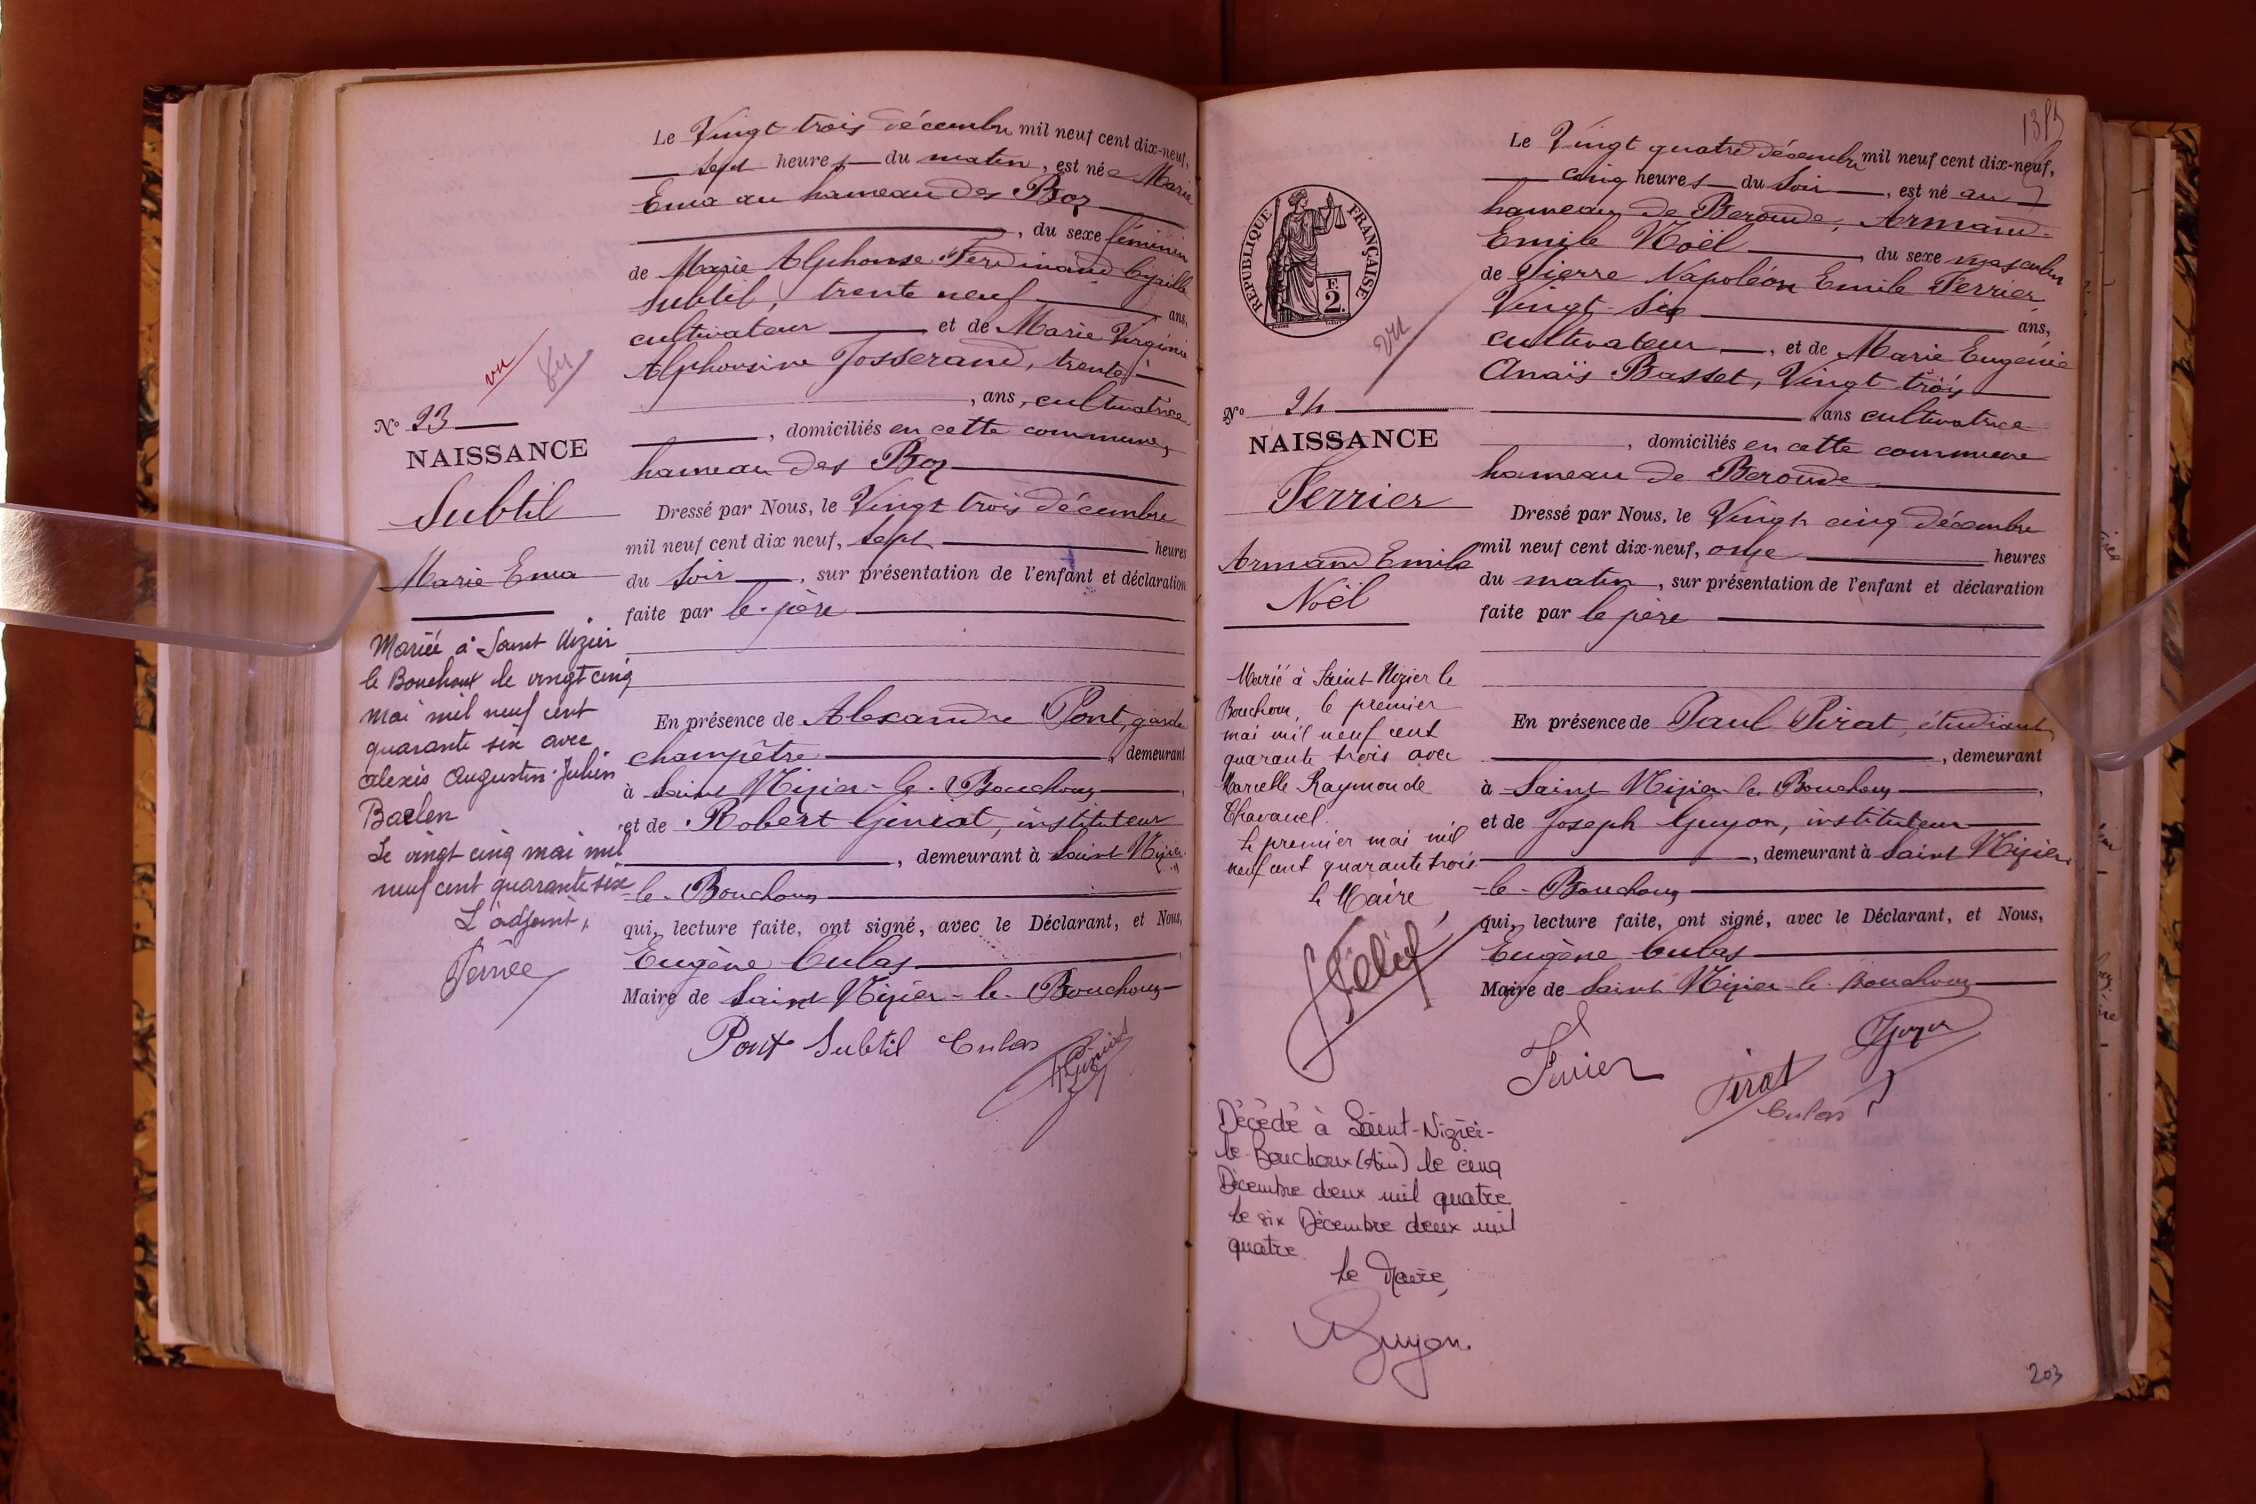 Le Vingt trois décembre mil neuf cent dix-neuf,
sept heures du matin, est née Marie
Ema au hameau des Boz
, du sexe féminin
de Marie Alphonse Ferdinand Cyrille
Subtil, trente neuf ans,
cultivateur et de Marie Virginie
Alphonsine Josserand, trente
, ans, cultivatrice
, domiciliés en cette commune,
hameau des Boz
Dressé par Nous, le Vingt trois décembre
mil neuf cent dix neuf, sept heures
du soir, sur présentation de l'enfant et déclaration
faite par le père
En présence de Alexandre Pont, garde
champêtre, demeurant
à Saint Nizier-le-Bouchoux,
et de Robert Genirat, instituteur
, demeurant à Saint Nizier
-le-Bouchoux
qui, lecture faite, ont signé, avec le Déclarant, et Nous,
Eugène Culas
Maire de Saint Nizier-le-Bouchoux
Pont Subtil Culas
vu
vu
N° 23
NAISSANCE
Subtil
Marie Ema
Mariée à Saint Nizier
le Bouchoux le vingt cinq
mai mil neuf cent
quarante six avec
Alexis Augustin Julien
Baclen
Le vingt cinq mai mil
neuf cent quarante six
L'adjoint,
1385
Le Vingt quatre décembre mil neuf cent dix-neuf,
cinq heures du soir, est né au
hameau de Beroude, Armand
Emile Noël, du sexe masculin
de Pierre Napoléon Emile Ferrier
Vingt-six ans,
cultivateur, et de Marie Eugénie
Anaïs Basset, Vingt trois
ans cultivatrice
, domiciliés en cette commune
hameau de Beroude
Dressé par Nous, le Vingt cinq décembre
mil neuf cent dix-neuf, onze heures
du matin, sur présentation de l'enfant et déclaration
faite par le père
En présence de Paul Pirat, étudiant,
, demeurant
à Saint Nizier-le Bouchoux,
et de Joseph Guyon, instituteur
, demeurant à Saint Nizier
-le-Bouchoux
qui, lecture faite, ont signé, avec le Déclarant, et Nous,
Eugène Culas
Maire de Saint Nizier-le-Bouchoux
Ferrier Pirat Guyon
Culas
REPUBLIQUE FRANÇAISE
F.
2.
vu
N° 24
NAISSANCE
Ferrier
Armand Emile
Noël
Marié à Saint-Nizier le
Bouchoux, le premier
mai mil neuf cent
quarante trois avec
Marcelle Raymonde
Chavanel.
Le premier mai mil
neuf cent quarante trois
le Maire,
Décédé à Saint-Nizier-
le-Bouchoux (Ain) le cinq
Décembre deux mil quatre
Le six Décembre deux mil
quatre
Le Maire,
Guyon.
203